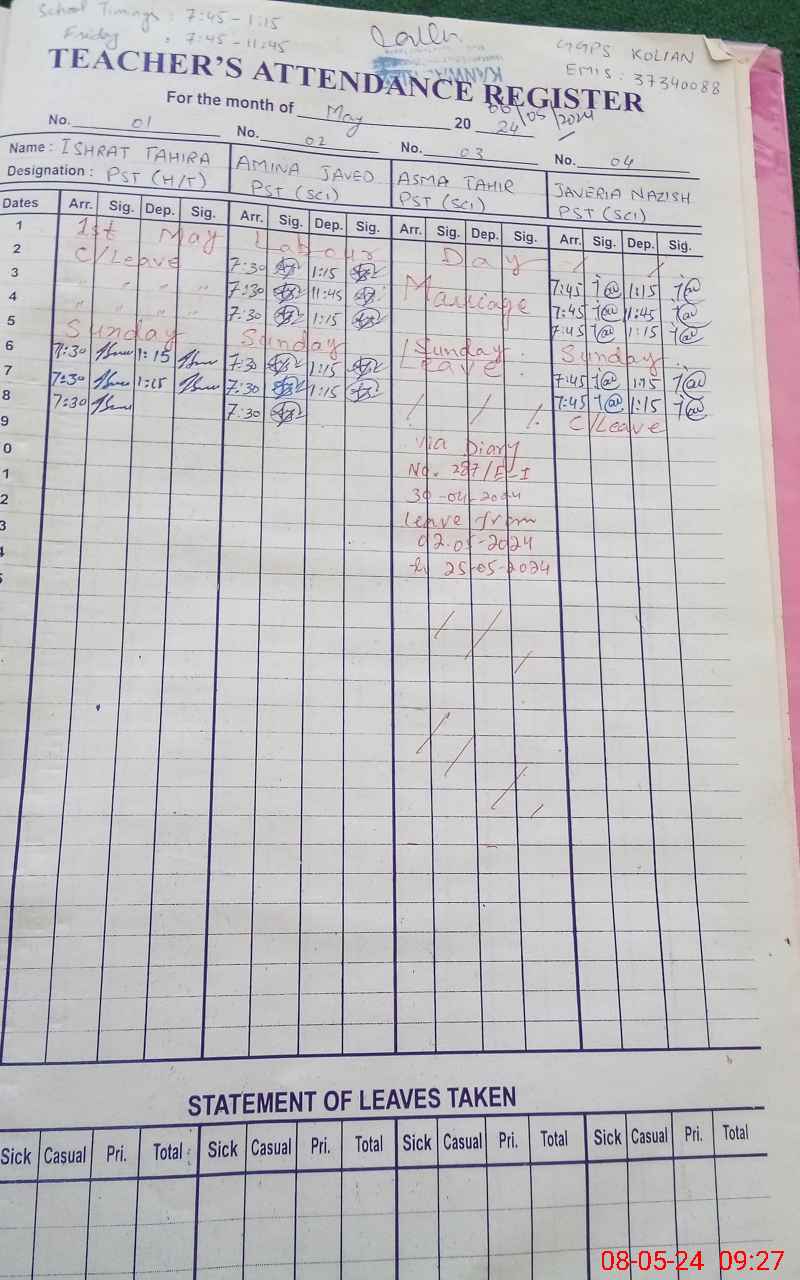 School Timings : 7:45 - 1:15
Friday : 7:45 - 11:45
GGPS KOLIAN
EMIS : 37340088
TEACHER'S ATTENDANCE REGISTER
For the month of May 2024
08/05/2024
No. 01 No. 02 No. 03 No. 04
Name : ISHRAT TAHIRA AMINA JAVED ASMA TAHIR JAVERIA NAZISH
Designation : PST (H/T) PST (SCI) PST (SCI) PST (SCI)
Dates Arr. Sig. Dep. Sig. Arr. Sig. Dep. Sig. Arr. Sig. Dep. Sig. Arr. Sig. Dep. Sig.
1 1st May Labour Day
2 C/Leave 7:30 1:15 7:45 1:15
3 " " " 7:30 11:45 Marriage 7:45 11:45
4 " " " 7:30 1:15 7:45 1:15
5 Sunday Sunday Sunday Sunday
6 7:30 1:15 7:30 1:15 Leave 7:45 1:15
7 7:30 1:15 7:30 1:15 7:45 1:15
8 7:30 7:30 C/Leave
9 via Diary
0 No. 287/E-I
1 30-04-2024
2 leave from
3 02-05-2024
4 to 25-05-2024
5
STATEMENT OF LEAVES TAKEN
Sick Casual Pri. Total Sick Casual Pri. Total Sick Casual Pri. Total Sick Casual Pri. Total
08-05-24 09:27